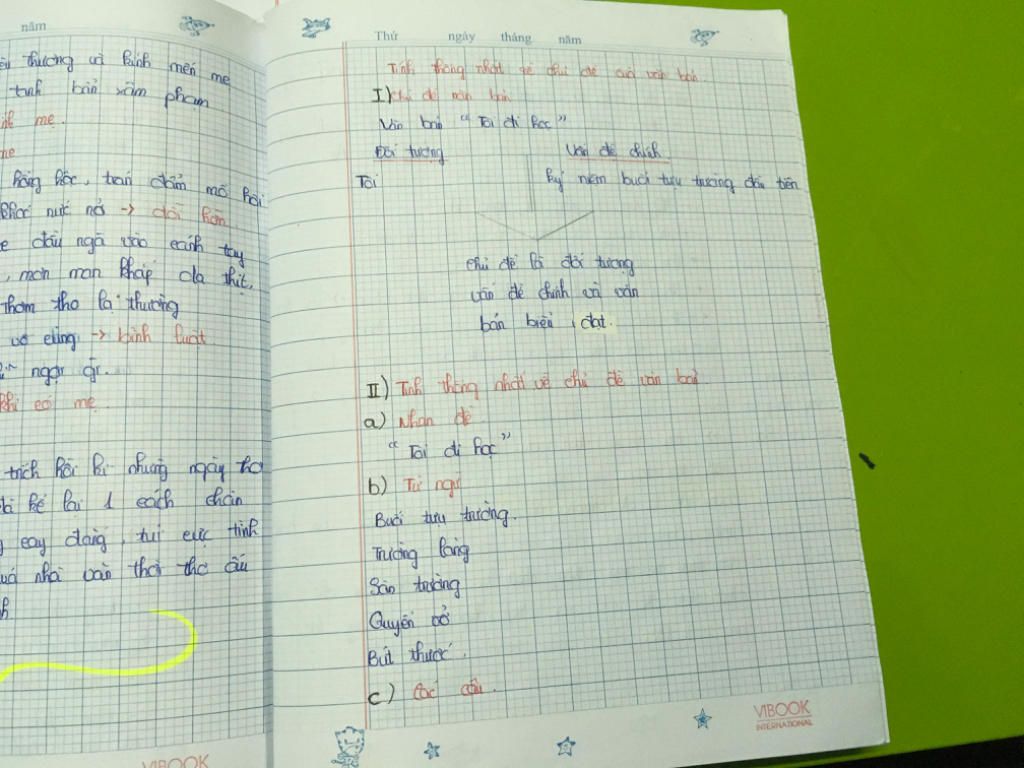 năm
thương và kính mến mẹ
tình bẩn xâm phạm
mẹ.
hồng hộc, trán đẫm mồ hôi
nức nở -> dỗi hờn
đầu ngã vào cánh tay
, mơn man khắp da thịt,
thơm tho lạ thường
vô cùng -> bình luật
ngợi gì.
khi có mẹ
trích hồi kí những ngày thơ
kể lại 1 cách chân
cay đắng, tủi cực tình
nhà văn thời thơ ấu
VIBOOK
Thứ ngày tháng năm
Tính thống nhất về chủ đề của văn bản
I) Chủ đề văn bản
Văn bản “Tôi đi học”
Đối tượng Vấn đề chính
Tôi Kỷ niệm buổi tựu trường đầu tiên
chủ đề là đối tượng
vấn đề chính và văn
bản biểu đạt.
II) Tính thống nhất về chủ đề văn bản.
a) Nhan đề
“Tôi đi học”
b) Từ ngữ
Buổi tựu trường.
Trường làng
Sân trường
Quyển vở
Bút thước.
c) Các câu.
VIBOOK
INTERNATIONAL